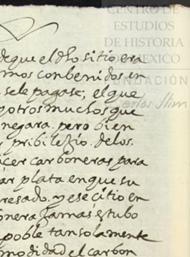 CENTRO DE
ESTUDIOS
DE HISTORIA
DE MÉXICO
FUNDACIÓN
Carlos Slim
de que el dho sitio era
mos conbenidos en
se le pagase, el que
y otros muchos que
negara. pero bien
pribilejio. de los.
acer carboneras para
ar plata en que su
resado. y ese sitio en
onera jamas estubo
poble tan solamente
modidad el carbon